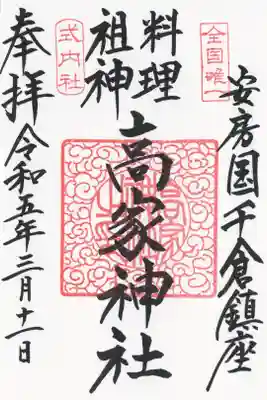 全国唯一
安房国千倉鎮座
料理
祖神
高家神社
式内社
奉拝
令和五年三月十一日